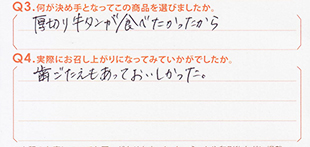 Q3.何が決め手となってこの商品を選びましたか。
厚切り牛タンが食べたかったから
Q4.実際にお召し上がりになってみていかがでしたか。
歯ごたえもあっておいしかった。